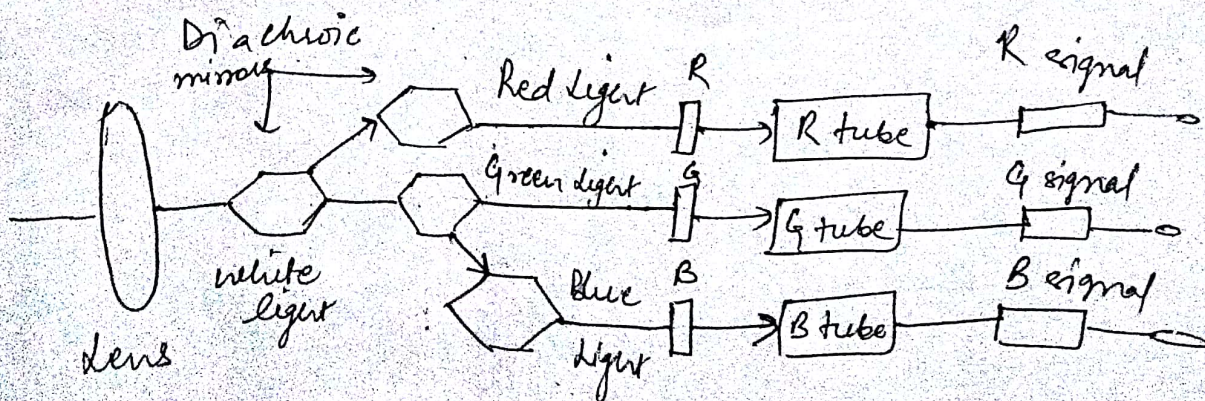 Diachroic
mirrors
Red Light
R
R tube
R signal
Green Light
G
G tube
G signal
white
light
Lens
Blue
Light
B
B tube
B signal